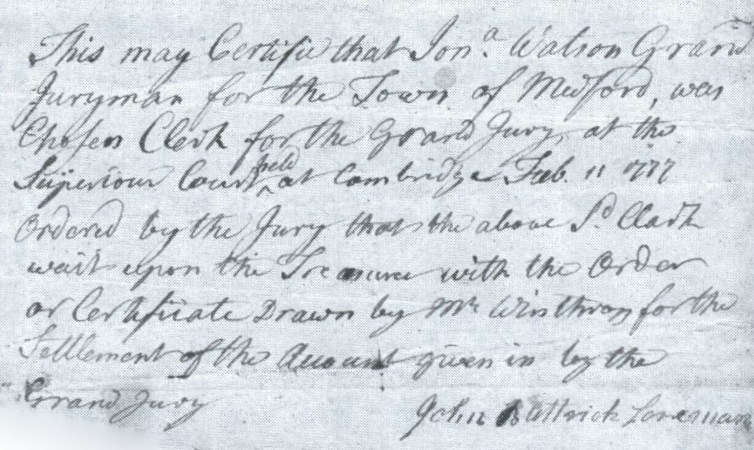 This may Certifie that Jonª. Watson Grand
Juryman for the Town of Medford, was
Chosen Clerk for the Grand Jury, at the
Superiour Court held at Cambridge Feb. 11 1777
Ordered by the Jury that the above Sd Clark
wait upon the Treasurer with the Order
or Certificate Drawn by Mr Winthrop for the
Settlement of the Account given in by the
Grand Jury
John Buttrick Foreman